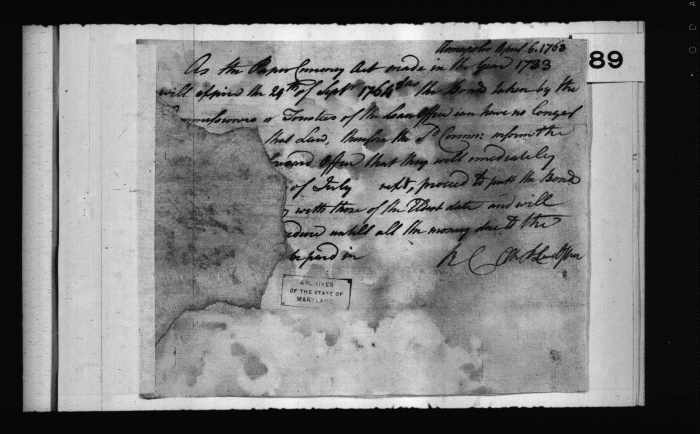 Annapolis April 6. 1763
89
As the Paper Currency Act made in the Year 1733
will expire the 29th of Sept 1764 the Bonds taken by the
Commissioners or Trustees of the Loan Office can have no longer
that Law, therefore the Sd Commrs inform the
Office that they will imediately
of July next, proceed to putt the Bonds
with those of the Eldest date and will
untill all the money due to the
be paid in
ARCHIVES
OF THE STATE OF
MARYLAND